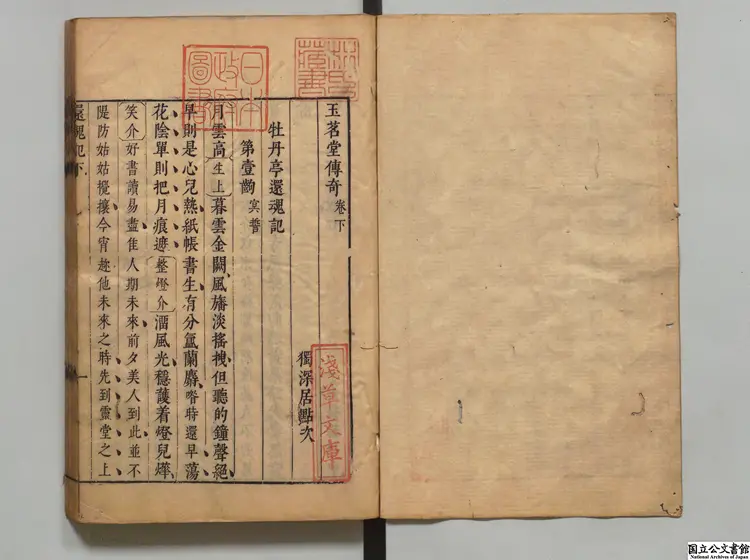 玉茗堂傳奇 卷下
獨深居點次
牡丹亭還魂記
第壹齣 冥誓
月雲高〔生上〕暮雲金闕風旛淡搖拽但聽的鐘聲絕
早則是心兒熱紙帳書生有分氳蘭麝喒時還早蕩
花陰單則把月痕遮〔整燈介〕溜風光穩護着燈兒燁
〔笑介〕好書讀易盡佳人期未來前夕美人到此並不
隄防姑姑攪攘今宵趂他未來之時先到雲堂之上
還魂記下
一
日本政府圖書
林氏藏書
淺草文庫
国立公文書館
National Archives of Japan